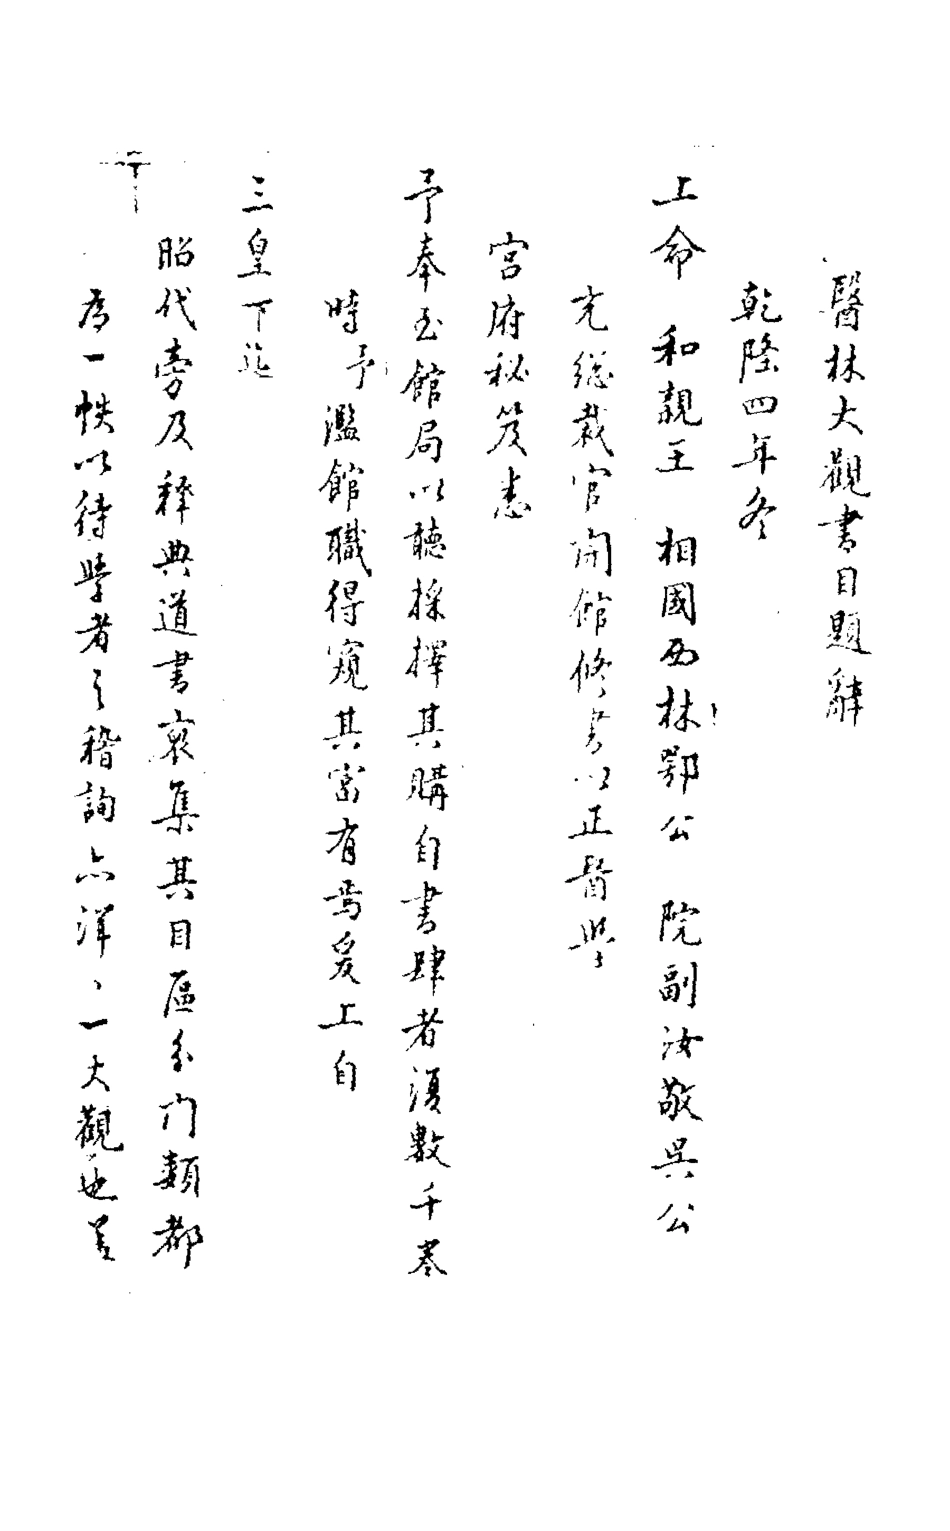 醫林大觀書目題辭
乾隆四年冬
上命 和親王 相國西林鄂公 院副汝敬吳公
充総裁官開館修書以正醫學
宮府秘笈悉
予奉至館局以聽採擇其購自書肆者須數千卷
時予濫館職得窺其富有焉爰上自
三皇下迄
昭代旁及釋典道書裒集其目區分门類都
為一帙以待學者之稽詢亦洋〻一大觀也